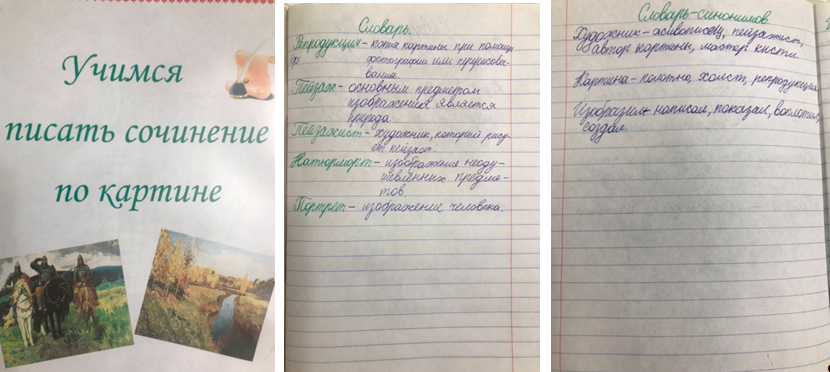 Учимся
писать сочинение
по картине
Словарь.
Репродукция – копия картины при помощи
ф фотографии или
вания.
Пейзаж – основным предмером
изображения является
природа.
Пейзажист – художник, который рису-
ет пейзаж.
Натюрморт – изображение неоду-
шевлённых предме-
тов.
Портрет – изображение человека.
Словарь-синонимов
Художник – живописец, пейзажист,
автор картины, мастер кисти.
Картина – полотно, холст, репродукция
Изобразил – написал, показал, воплотил,
создал.